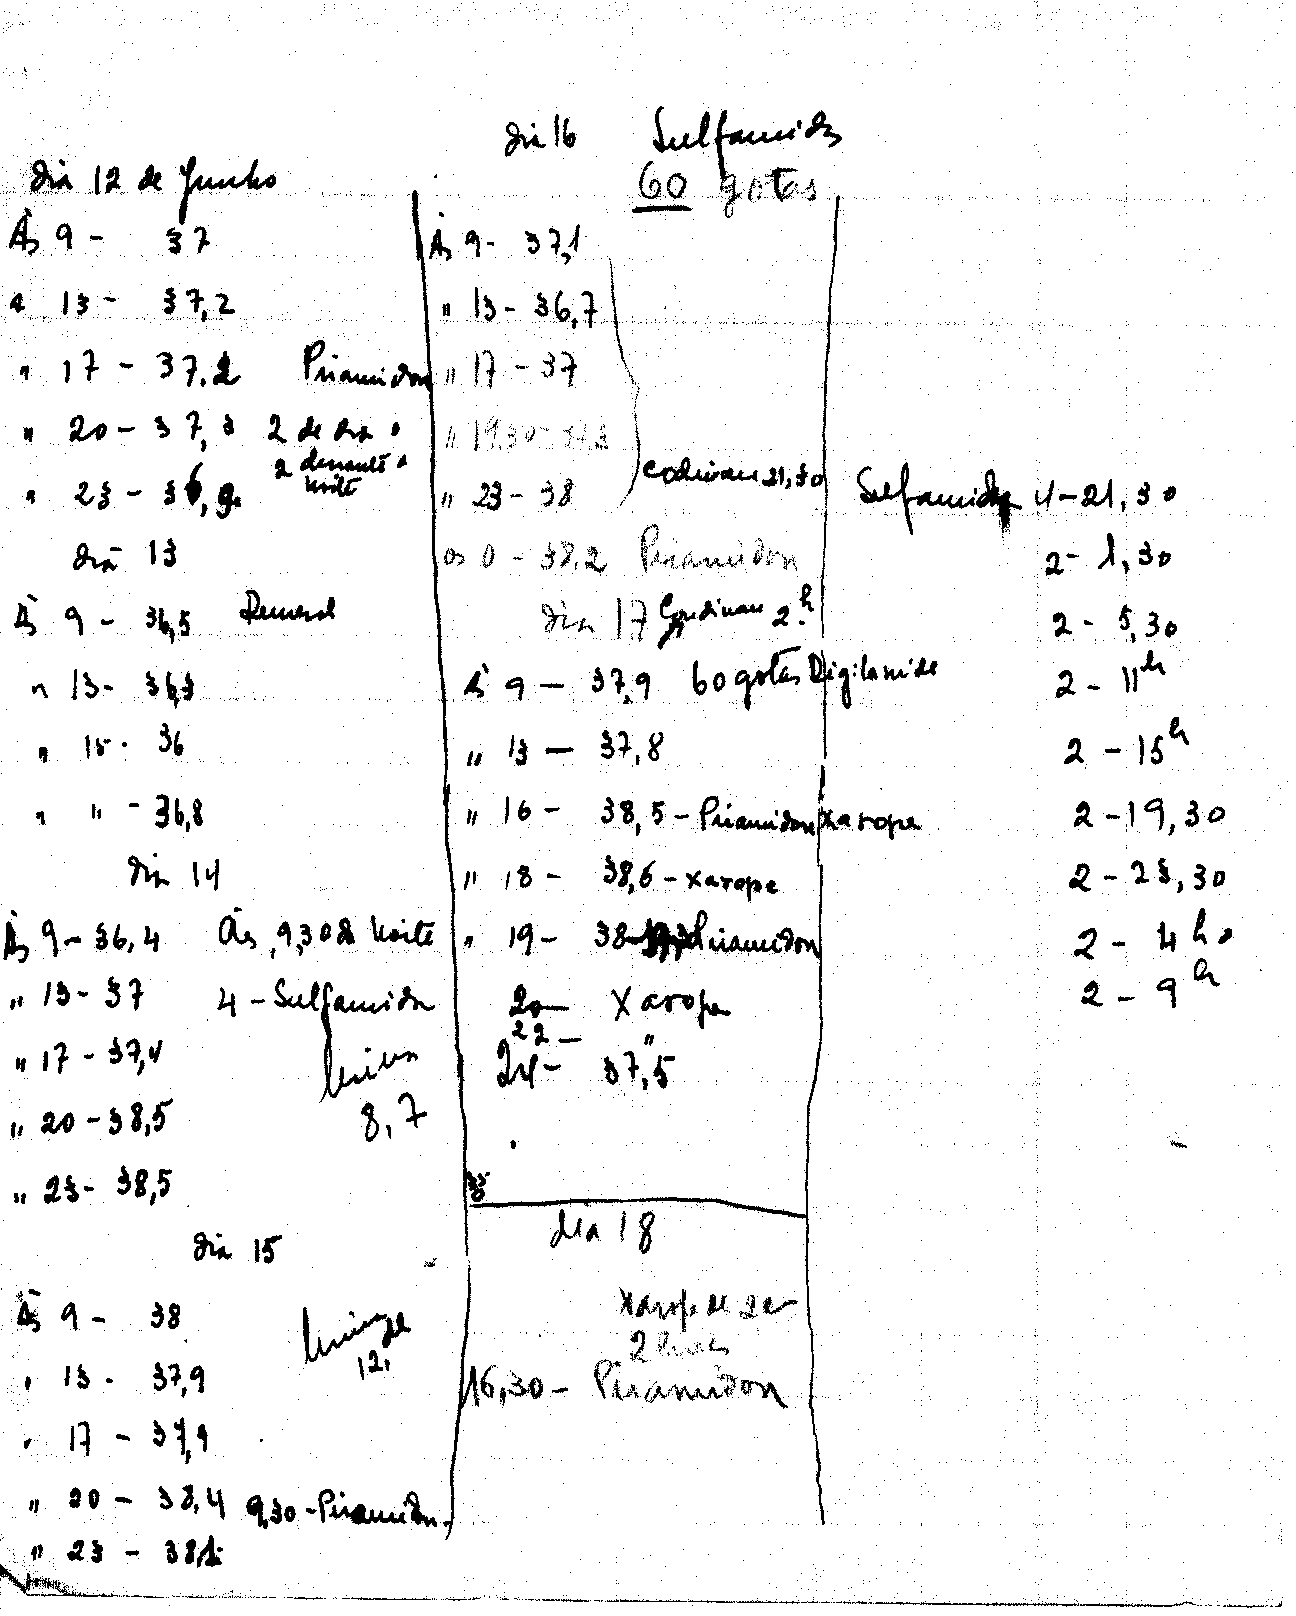 dia 12 de Junho
Às 9 - 37
" 13 - 37,2
" 17 - 37,2 Piramidon
" 20 - 37,3 2 de dia e
2 durante a
noite
" 23 - 36,9
dia 13
Às 9 - 36,5
" 13 - 36,3
" 15 - 36
" " - 36,8
dia 14
Às 9 - 36,4 Às 9,30 da noite
" 13 - 37 4 - Sulfamida
" 17 - 37,4
8,7
" 20 - 38,5
" 23 - 38,5
dia 15
Às 9 - 38
12,
" 13 - 37,9
" 17 - 37,9
" 20 - 38,4 9,30 - Piramidon
" 23 - 38,1
dia 16 Sulfamida
60 gotas
Às 9 - 37,1
" 13 - 36,7
" 17 - 37
" 19,30 -
21,30
" 23 - 38
às 0 - 38,2 Piramidon
dia 17 2h
Às 9 - 37,9 60 gotas Digilanide
" 13 - 37,8
" 16 - 38,5 - Piramidon xarope
" 18 - 38,6 - xarope
" 19 - 38 Piramidon
20 - Xarope
22 - "
24 - 37,5
dia 18
xarope de 2 em
2 horas
16,30 - Piramidon
Sulfamida 4 - 21,30
2 - 1,30
2 - 5,30
2 - 11h
2 - 15h
2 - 19,30
2 - 23,30
2 - 4h
2 - 9h